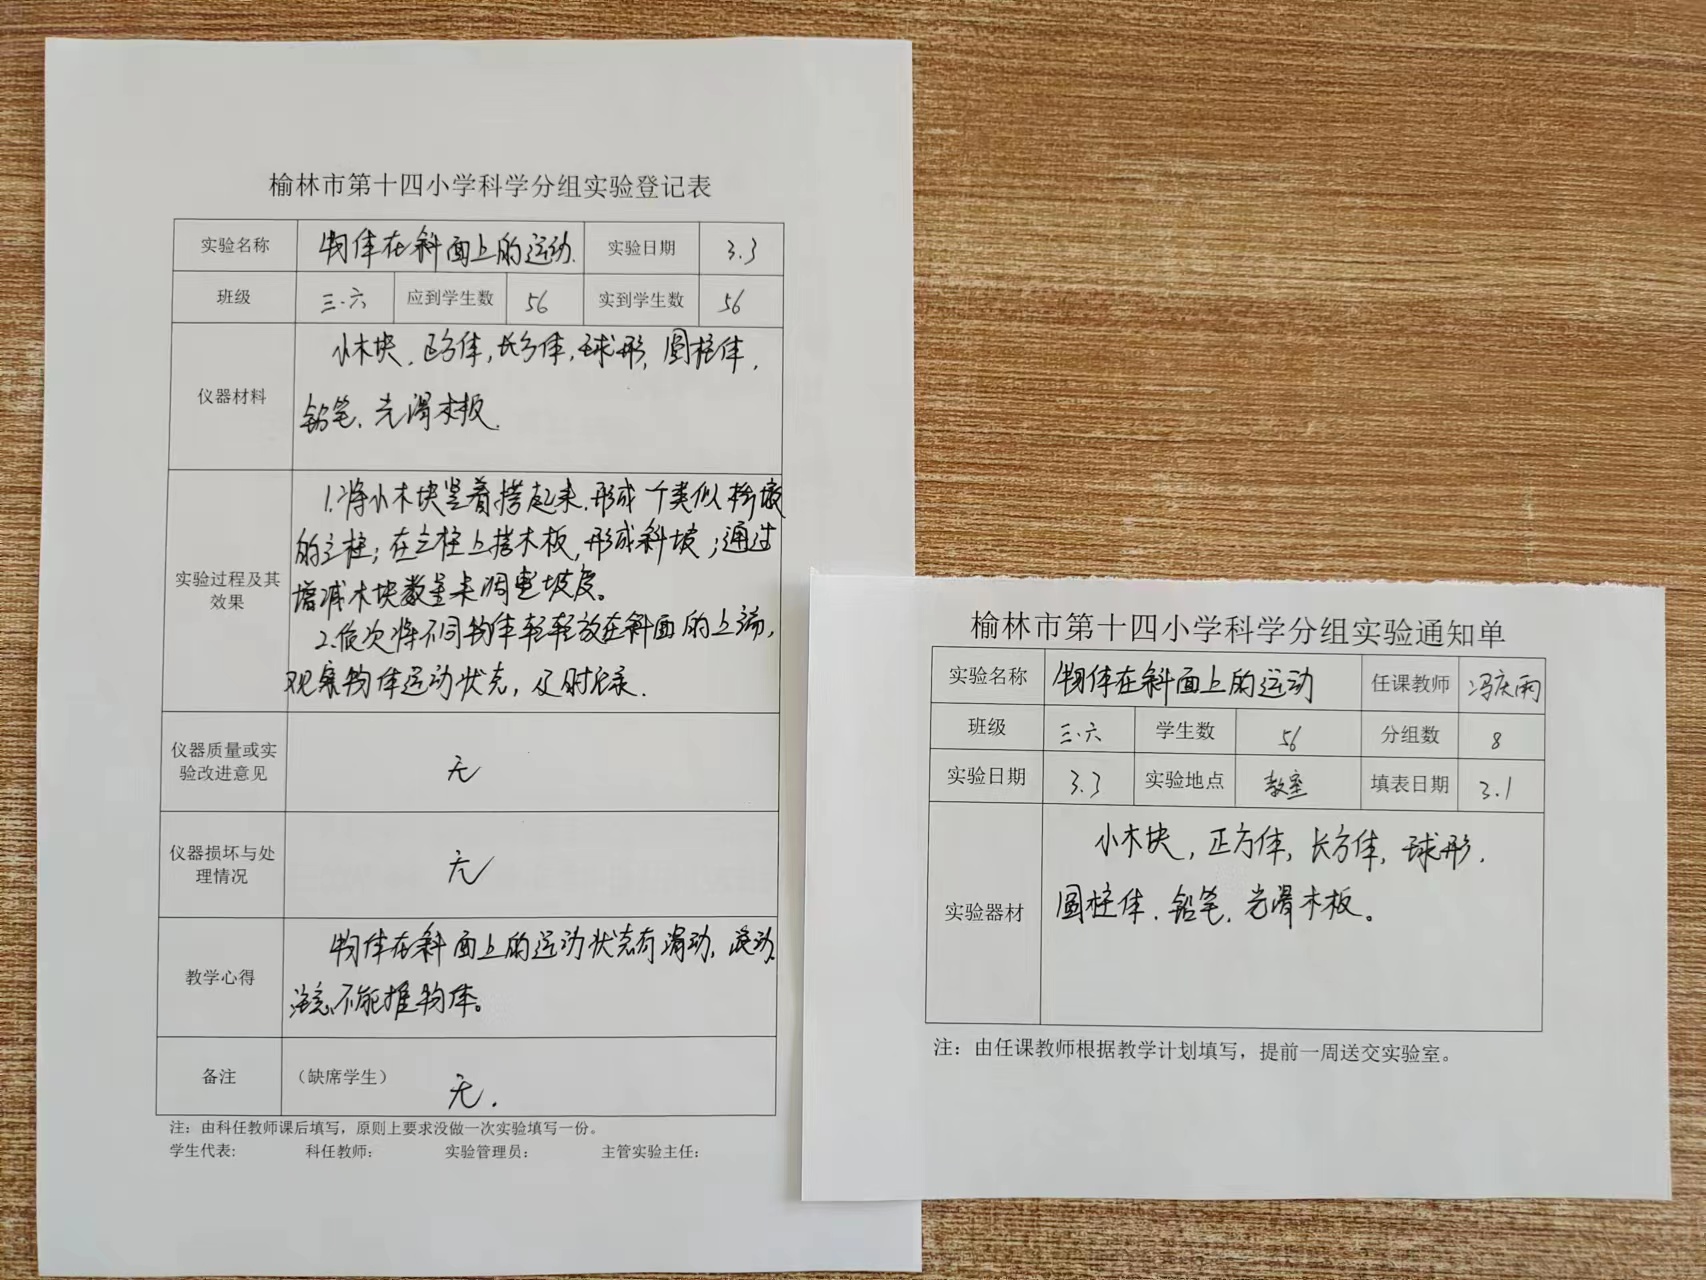 榆林市第十四小学科学分组实验登记表
实验名称 物体在斜面上的运动. 实验日期 3.3
班级 三.六 应到学生数 56 实到学生数 56
仪器材料
小木块、正方体,长方体,球形,圆柱体,
铅笔、光滑木板.
实验过程及其
效果
1.将小木块竖着搭起来.形成个类似桥墩
的立柱;在立柱上搭木板,形成斜坡;通过
增减木块数量来调整坡度。
2.依次将不同物体轻轻放在斜面的上端,
观察物体运动状态,及时记录.
仪器质量或实
验改进意见
无
仪器损坏与处
理情况
无
教学心得
物体在斜面上的运动状态有滑动,滚动.
注意不能推物体。
备注 (缺席学生) 无.
注:由科任教师课后填写,原则上要求没做一次实验填写一份。
学生代表: 科任教师: 实验管理员: 主管实验主任:
榆林市第十四小学科学分组实验通知单
实验名称 物体在斜面上的运动 任课教师 冯庆雨
班级 三.六 学生数 56 分组数 8
实验日期 3.3 实验地点 教室 填表日期 3.1
实验器材
小木块,正方体,长方体,球形,
圆柱体.铅笔,光滑木板。
注:由任课教师根据教学计划填写,提前一周送交实验室。